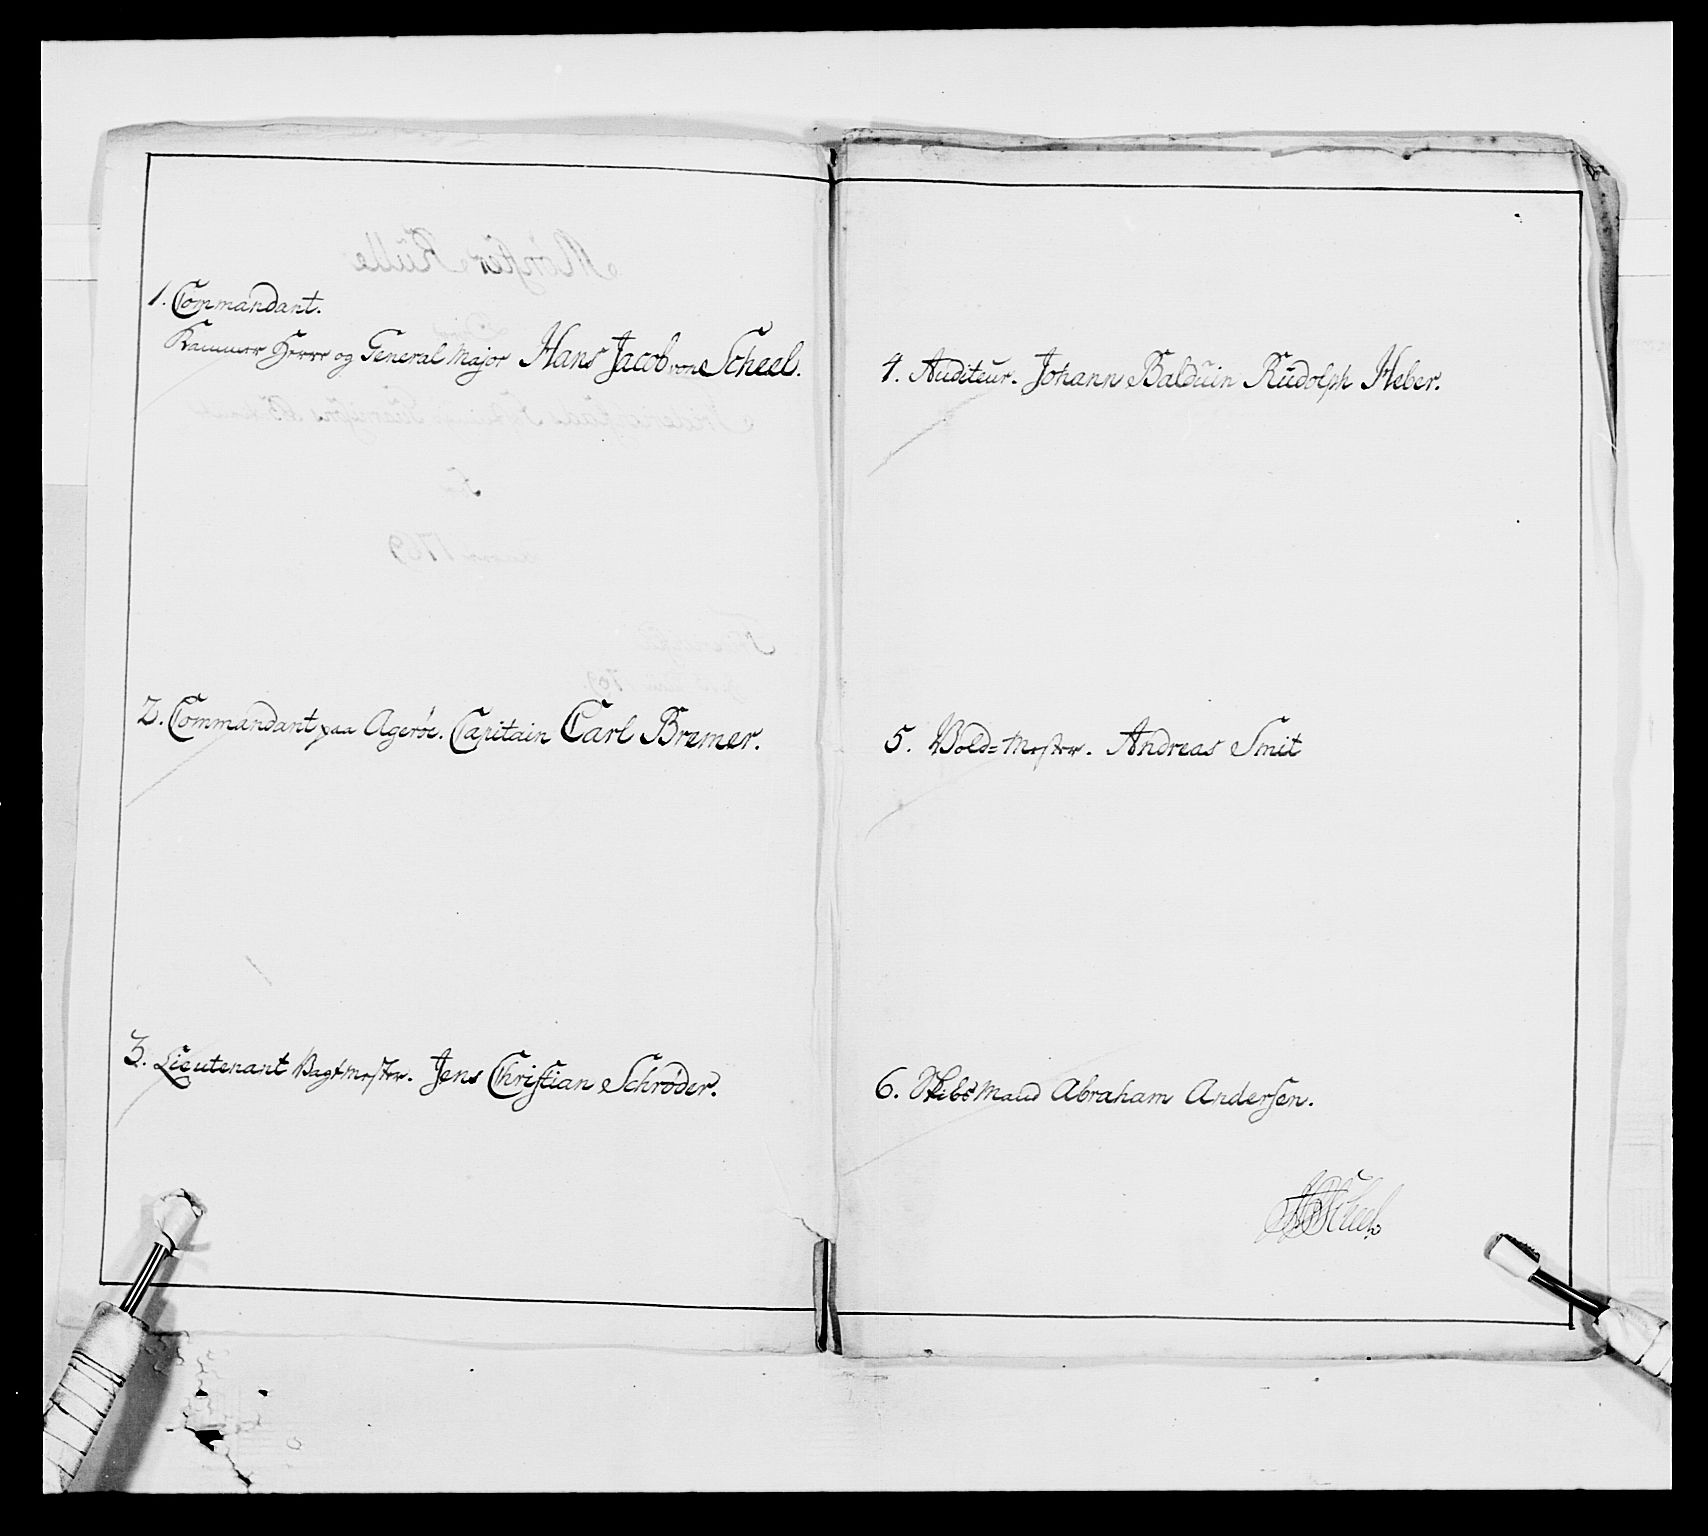 1. Commandant.
Kammer Herre og General Major Hans Jacob von Scheel.
2. Commandant paa Agerøe. Capitain Carl Bremer.
3. Lieutenant Vagtmester. Jens Christian Schrøder.
4. Auditeur. Johann Balduin Rudolph Heber.
5. Vold=Mester. Andreas Smit
6. Skibs Mand Abraham Andersen.
HJScheel